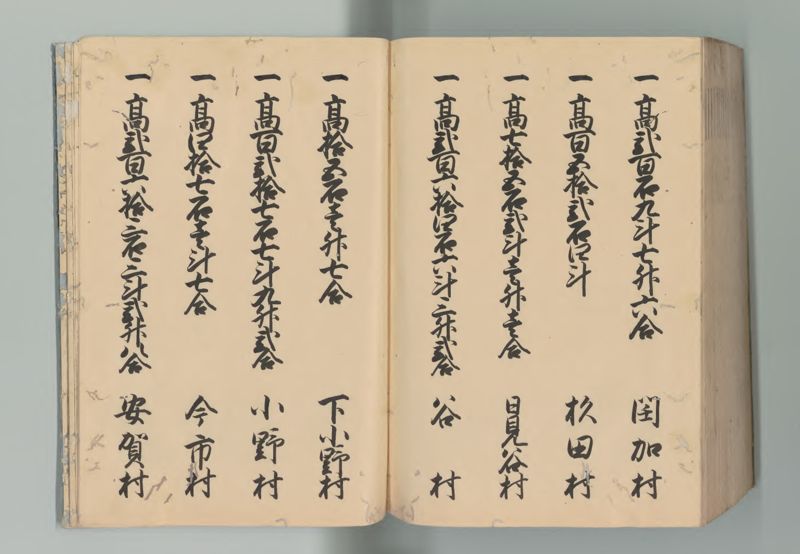 一 高弐百石九斗七升六合 閏加村
一 高百五拾弐石四斗 杉田村
一 高七拾五石弐斗壱升壱合 日見谷村
一 高弐百六拾四石六斗三升弐合 谷村
一 高拾五石壱升七合 下小野村
一 高百弐拾七石七斗九升弐合 小野村
一 高四拾七石壱斗七合 今市村
一 高弐百六拾三石二斗弐升八合 安賀村